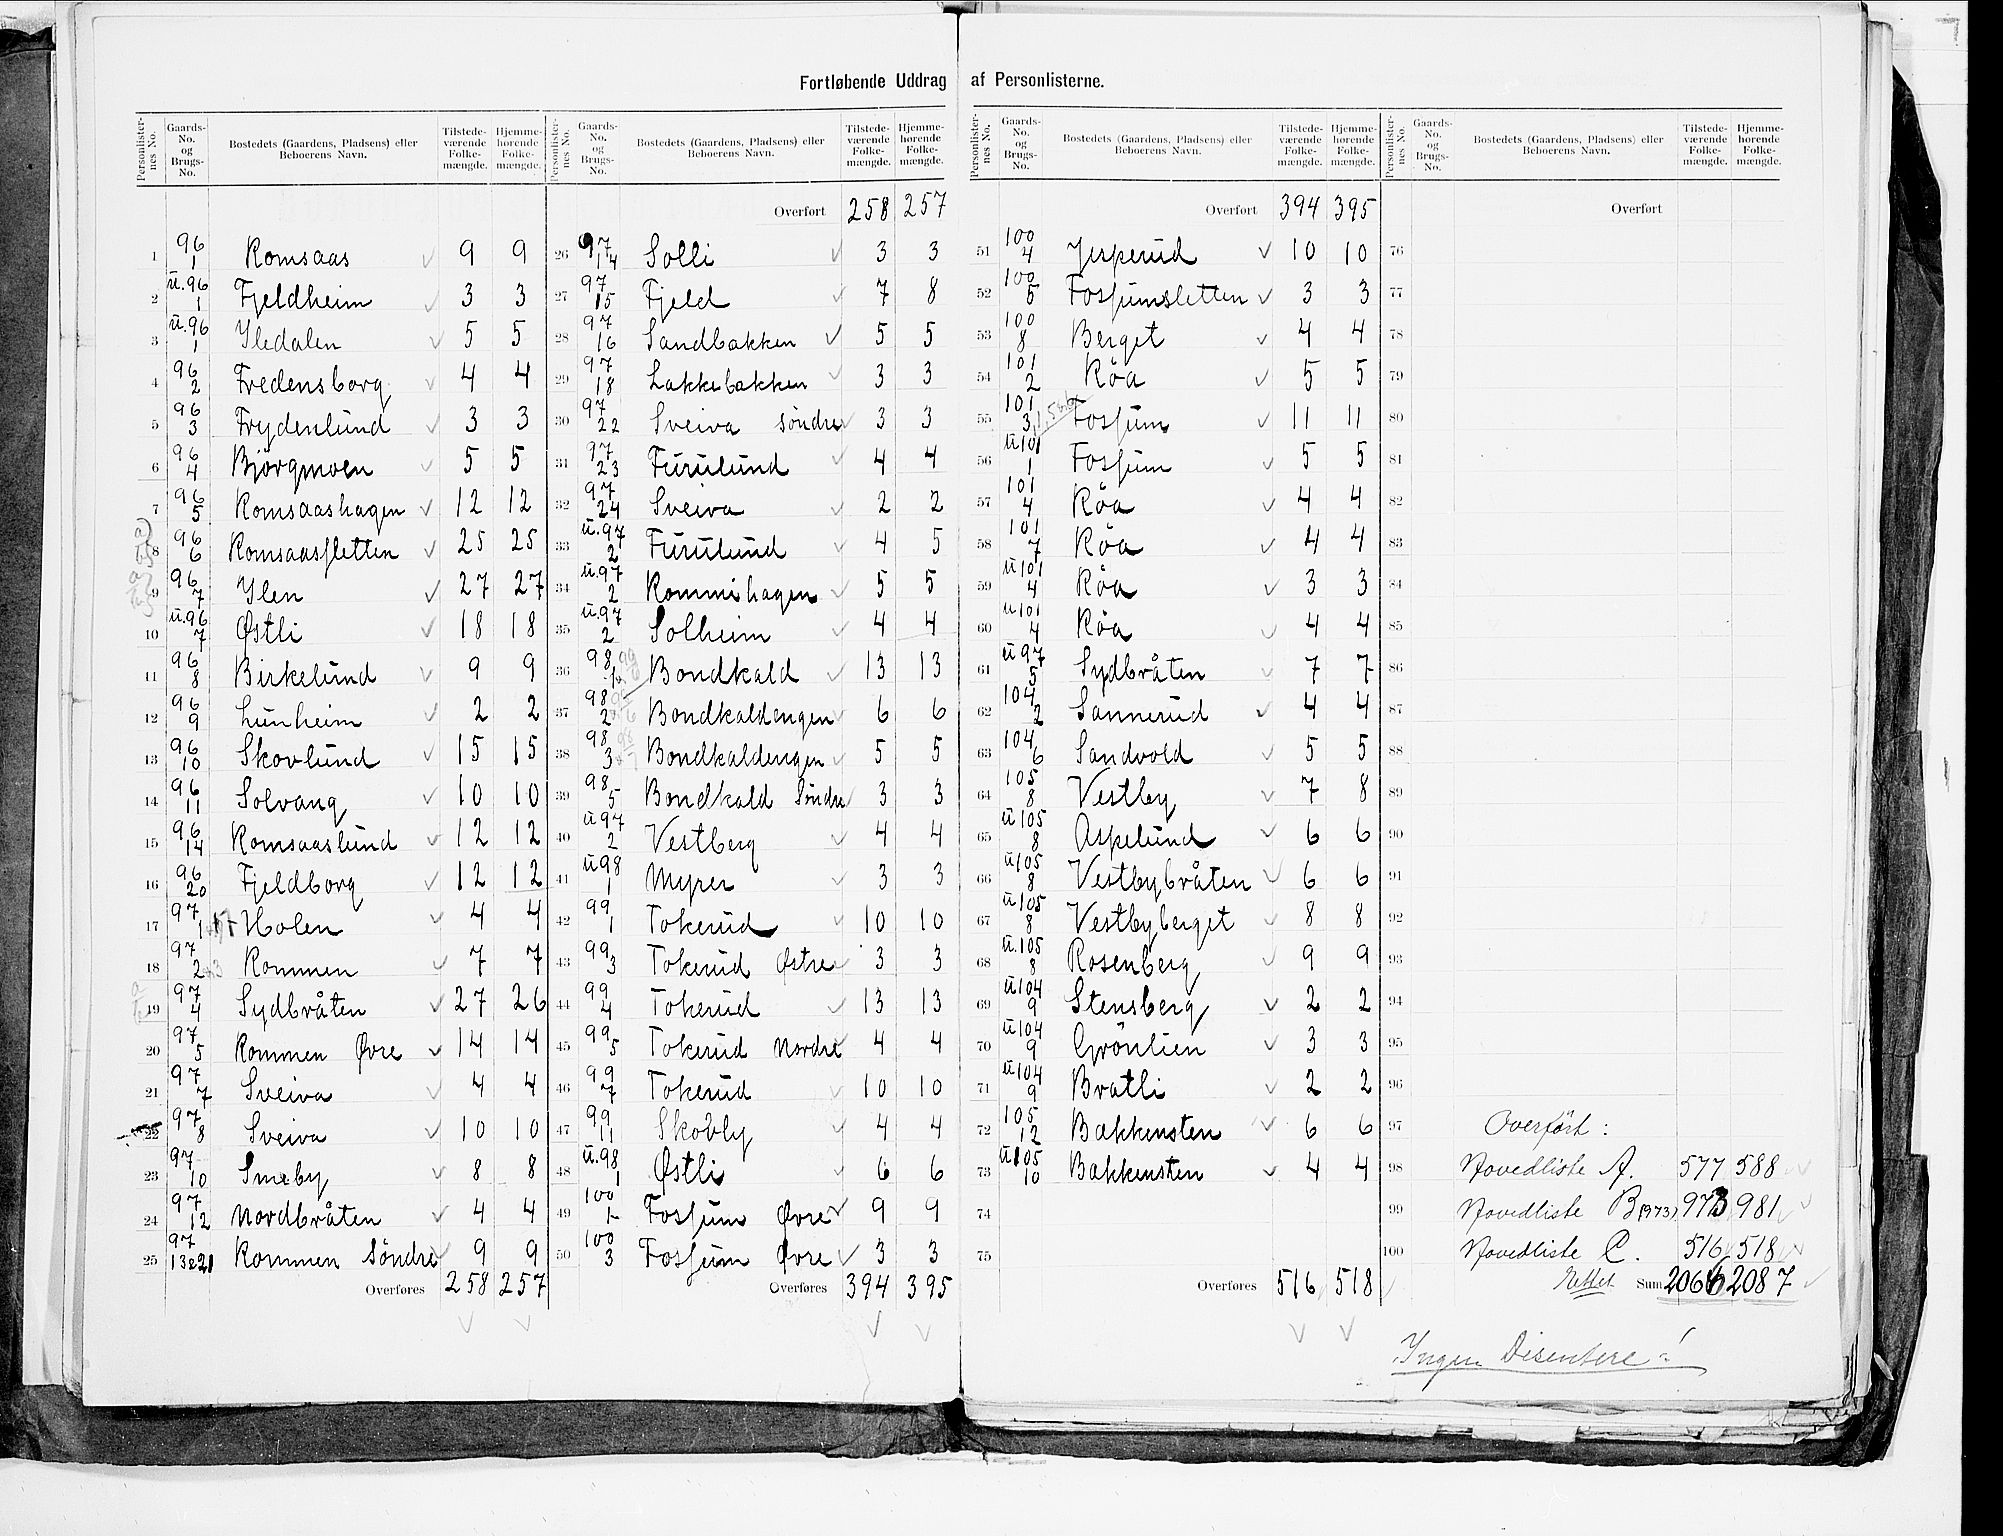 Fortløbende Uddrag af Personlisterne.
Personlister-nes No. | Gaards-No. og Brugs-No. | Bostedets (Gaardens, Pladsens) eller Beboerens Navn. | Tilstede-værende Folke-mængde. | Hjemme-hørende Folke-mængde.
1 96/1 Romsaas 9 9
2 u.96/1 Fjeldheim 3 3
3 u.96/1 Yledalen 5 5
4 96/2 Fredensborg 4 4
5 96/3 Frydenlund 3 3
6 96/4 Bjørgmoen 5 5
7 96/5 Romsaashagen 12 12
8 96/6 Romsaassletten 25 25
9 96/7 Ylen 27 27
10 u.96/7 Østli 18 18
11 96/8 Birkelund 9 9
12 96/9 Lunheim 2 2
13 96/10 Skovlund 15 15
14 96/11 Solvang 10 10
15 96/14 Romsaaslund 12 12
16 96/20 Fjeldborg 12 12
17 97/1 Holen 4 4
18 97/2 Rommen 7 7
19 97/4 Sydbråten 27 26
20 97/5 Rommen Øvre 14 14
21 97/7 Sveiva 4 4
22 97/8 Sveiva 10 10
23 97/10 Smeby 8 8
24 97/12 Nordbråten 4 4
25 97/13&21 Rommen Söndre 9 9
Overføres 258 257
Personlister-nes No. | Gaards-No. og Brugs-No. | Bostedets (Gaardens, Pladsens) eller Beboerens Navn. | Tilstede-værende Folke-mængde. | Hjemme-hørende Folke-mængde.
Overført 258 257
26 97/14 Solli 3 3
27 97/15 Fjeld 7 8
28 97/16 Sandbakken 5 5
29 97/18 Lakkebakken 3 3
30 97/22 Sveiva Söndre 3 3
31 97/23 Furulund 4 4
32 97/24 Sveiva 2 2
33 u.97/2 Furulund 4 5
34 u.97/2 Rommihagen 5 5
35 u.97/2 Solheim 4 4
36 98/1 Bondkald 13 13
37 98/2 Bondkaldengen 6 6
38 98/3 Bondkaldengen 5 5
39 98/5 Bondkald Söndre 3 3
40 u97/2 Vestberg 4 4
41 u98/1 Myrer 3 3
42 99/1 Tokerud 10 10
43 99/3 Tokerud Østre 3 3
44 99/4 Tokerud 13 13
45 99/5 Tokerud Nordre 4 4
46 99/7 Tokerud 10 10
47 99/11 Skovly 4 4
48 u.98/1 Østli 6 6
49 100/1 Fossum Øvre 9 9
50 100/3 Fossum Øvre 3 3
Overføres 394 395
Personlister-nes No. | Gaards-No. og Brugs-No. | Bostedets (Gaardens, Pladsens) eller Beboerens Navn. | Tilstede-værende Folke-mængde. | Hjemme-hørende Folke-mængde.
Overført 394 395
51 100/4 Jesperud 10 10
52 100/5 Fossumsletten 3 3
53 100/8 Berget 4 4
54 101/2 Röa 5 5
55 101/3 Fossum 11 11
56 u101/1 Fossum 5 5
57 101/4 Röa 4 4
58 101/7 Röa 4 4
59 u101/4 Röa 3 3
60 u101/4 Röa 4 4
61 u97/5 Sydbråten 7 7
62 104/2 Sannerud 4 4
63 104/6 Sandvold 5 5
64 105/8 Vestby 7 8
65 u105/8 Aspelund 6 6
66 u105/8 Vestbybråten 6 6
67 u105/8 Vestbyberget 8 8
68 u.105/8 Rosenberg 9 9
69 u104/9 Stensberg 2 2
70 u104/9 Grönlien 3 3
71 u104/9 Bratli 2 2
72 105/12 Bakkensten 6 6
73 u105/10 Bakkensten 4 4
74
75
Overføres 516 518
Personlister-nes No. | Gaards-No. og Brugs-No. | Bostedets (Gaardens, Pladsens) eller Beboerens Navn. | Tilstede-værende Folke-mængde. | Hjemme-hørende Folke-mængde.
Overført
76
77
78
79
80
81
82
83
84
85
86
87
88
89
90
91
92
93
94
95
96
97 Overført:
98 Hovedliste A. 577 588
99 Hovedliste B (973) 973 981
100 Hovedliste C. 516 518
Rettet Sum 2066 2087
Ingen Disentere!